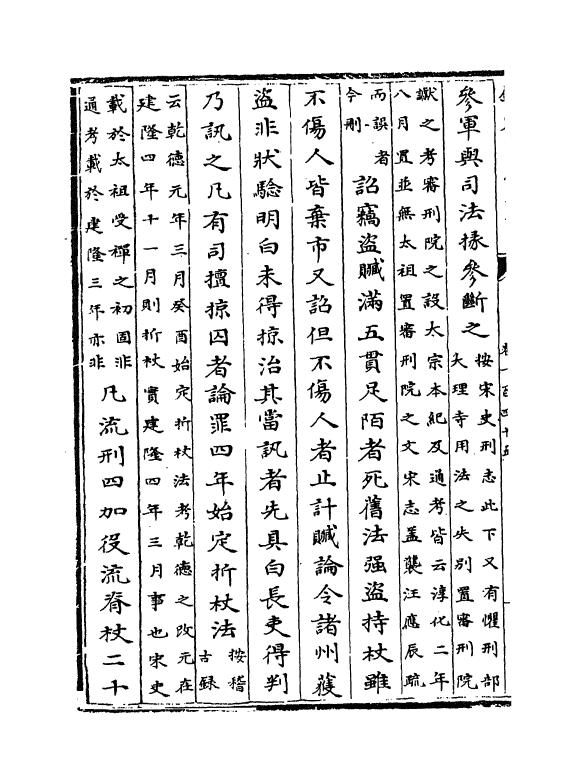 參軍與司法掾參斷之
按宋史刑志此下又有懼刑部
大理寺用法之失別置審刑院
讞之考審刑院之設太宗本紀及通考皆云淳化二年
八月置並無太祖置審刑院之文宋志蓋襲汪應辰疏
而誤者
今刪
詔竊盜贓滿五貫足陌者死舊法强盜持杖雖
不傷人皆棄市又詔但不傷人者止計贓論令諸州獲
盜非狀驗明白未得掠治其當訊者先具白長吏得判
乃訊之凡有司擅掠囚者論罪四年始定折杖法
按稽
古錄
云乾德元年三月癸酉始定折杖法考乾德之改元在
建隆四年十一月則折杖實建隆四年三月事也宋史
載於太祖受禪之初固非
通考載於建隆三年亦非
凡流刑四加役流脊杖二十